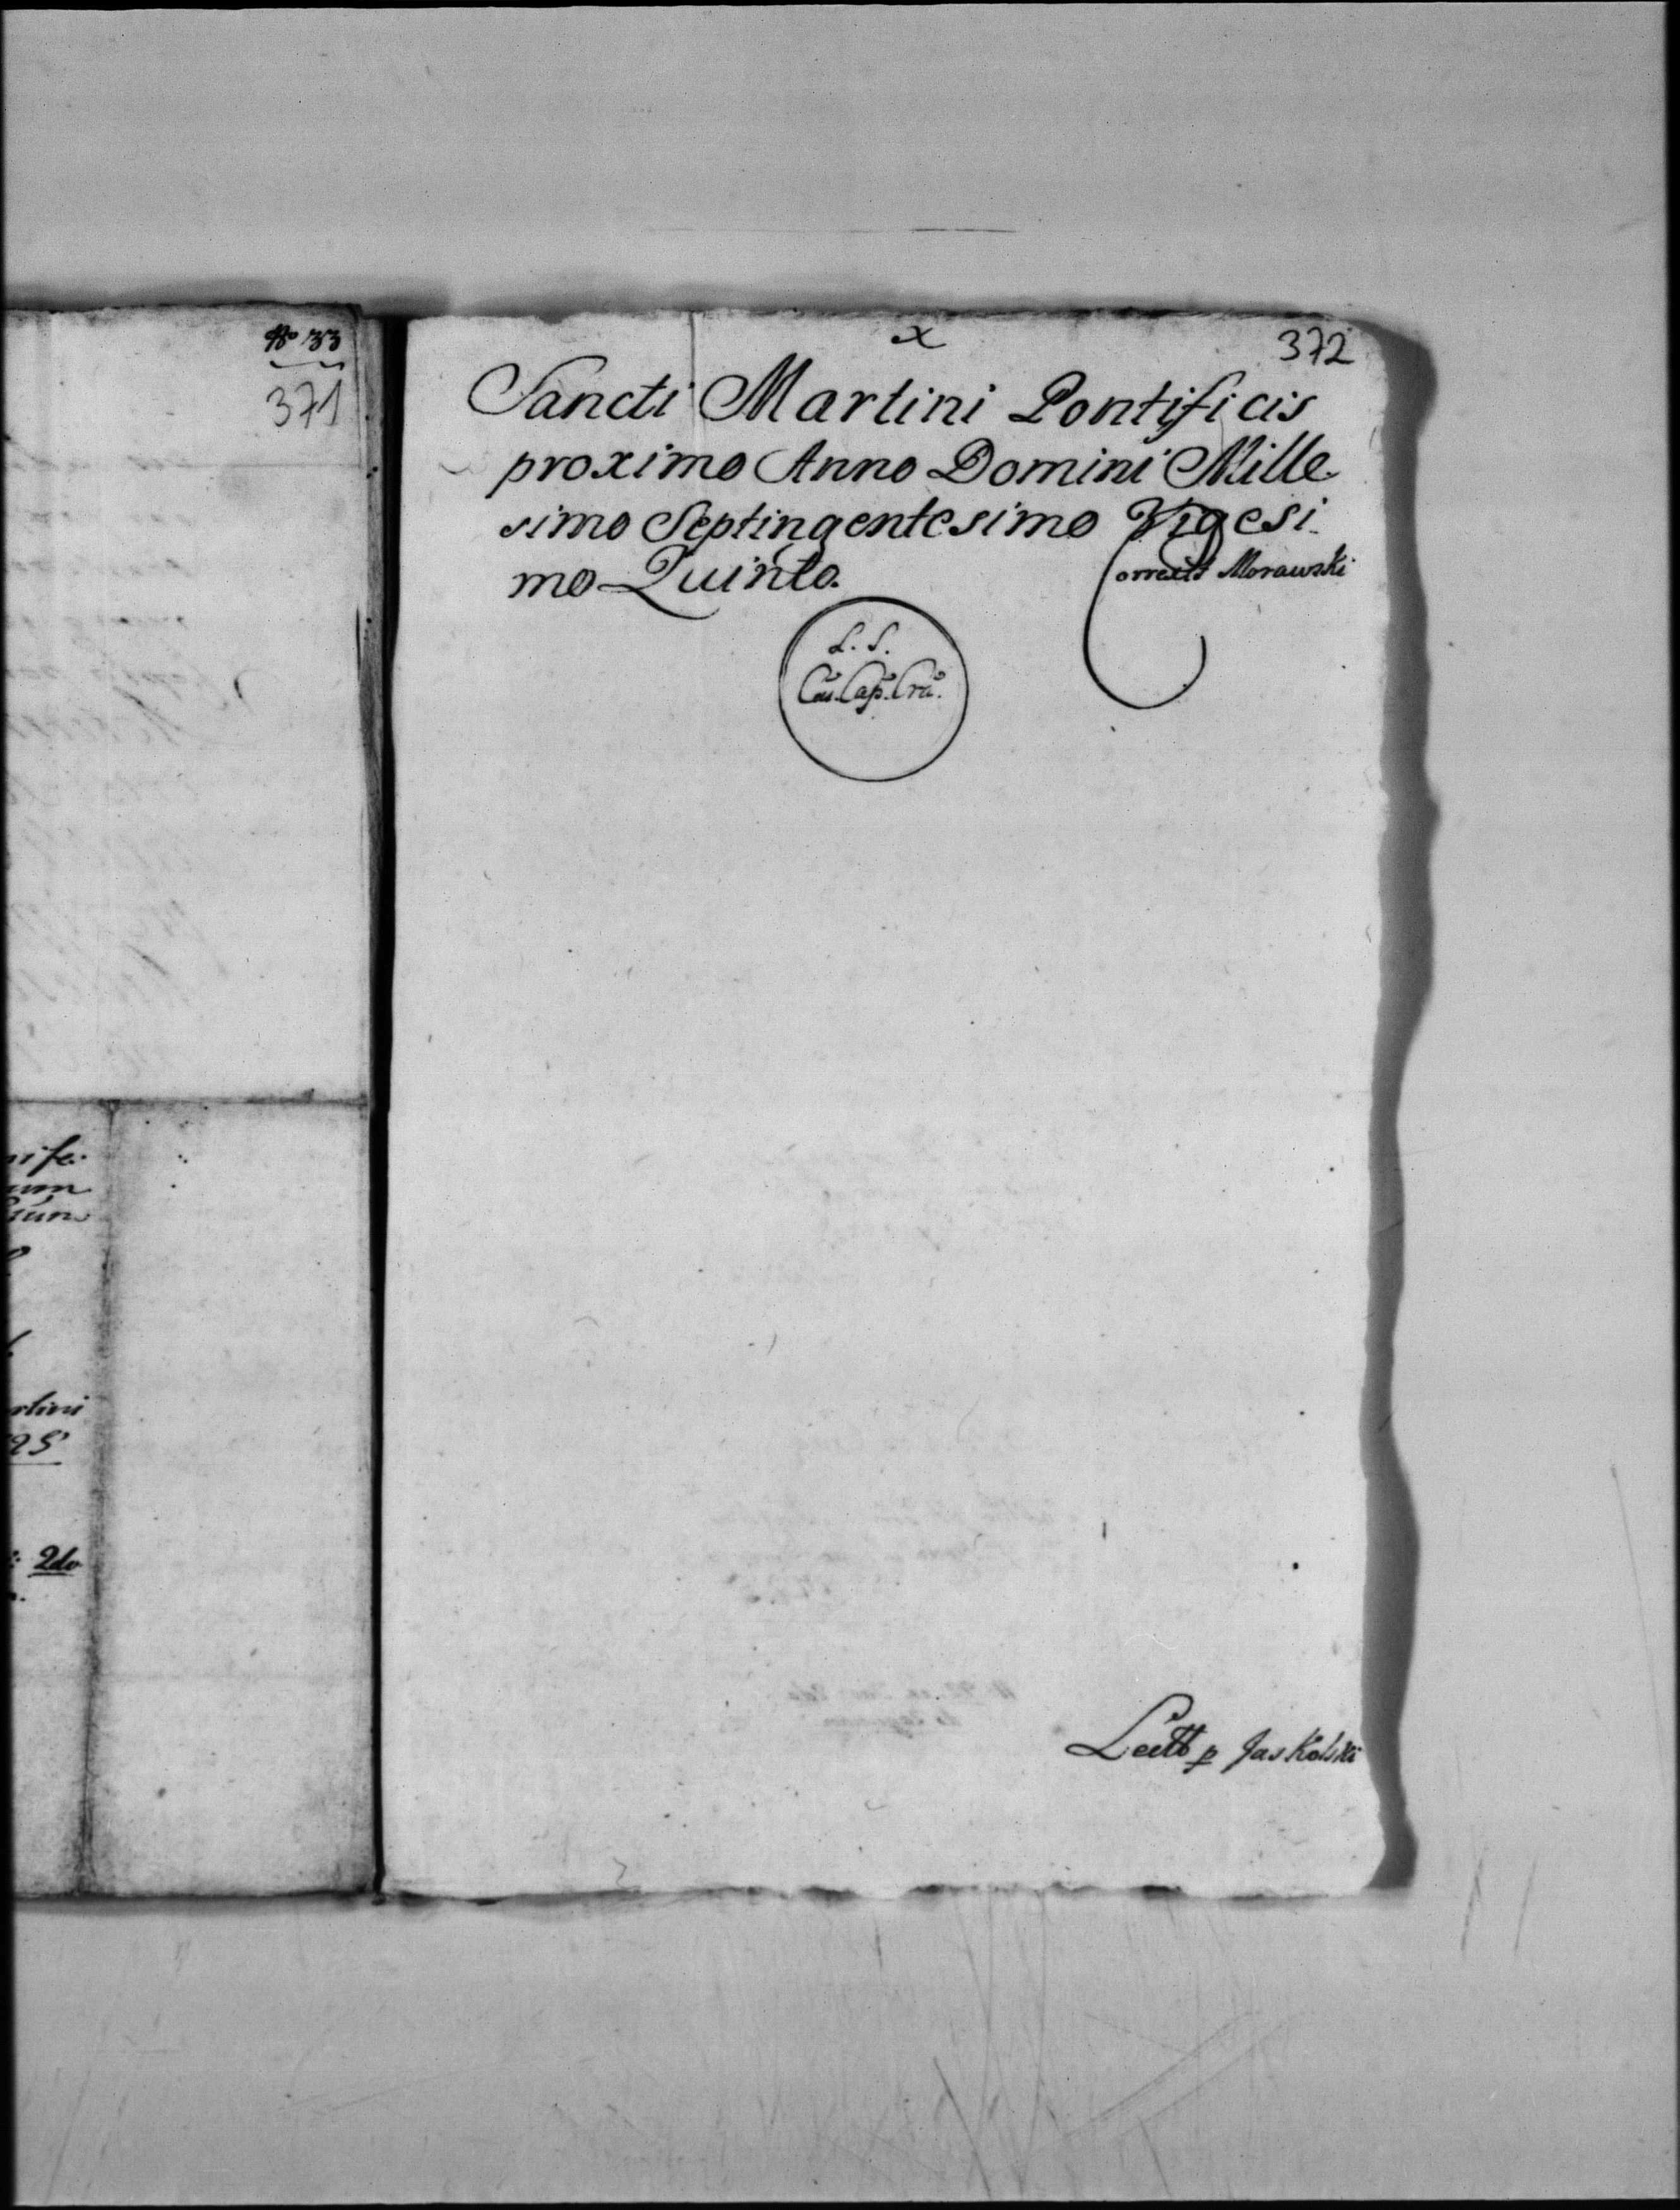 No 33
371
nife.
um
rtini
25
2do
x
372
Sancti Martini Pontificis
proximo Anno Domini Mille
simo Septingentesimo Vigesi
mo Quinto.
Correxit Morawski
L. S.
Cas. Cap. Cra.
Lect p Jaskolski